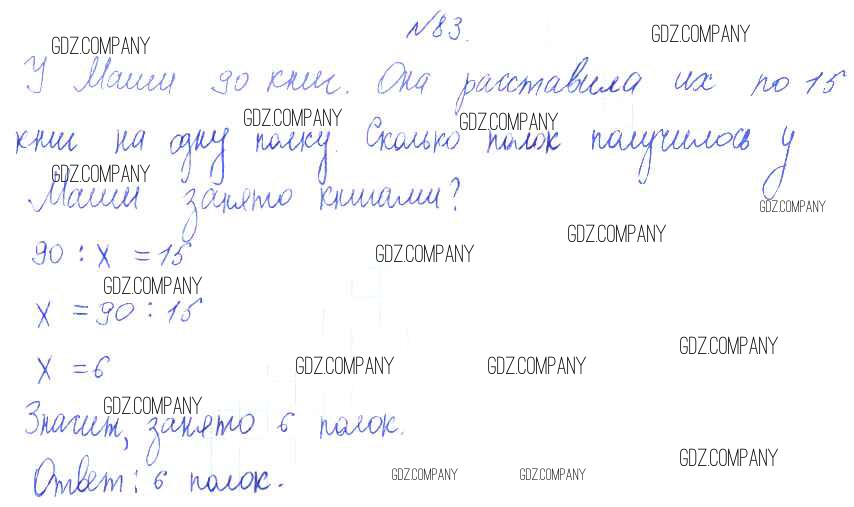 №83.
GDZ.COMPANY GDZ.COMPANY
У Маши 90 книг. Она расставила их по 15
GDZ.COMPANY GDZ.COMPANY
книг на одну полку. Сколько полок получилось у
GDZ.COMPANY
Маши занято книгами?
GDZ.COMPANY
GDZ.COMPANY
90 : x = 15 GDZ.COMPANY
GDZ.COMPANY
x = 90 : 15
GDZ.COMPANY
x = 6 GDZ.COMPANY GDZ.COMPANY
GDZ.COMPANY
Значит, занято 6 полок.
GDZ.COMPANY
Ответ: 6 полок. GDZ.COMPANY GDZ.COMPANY